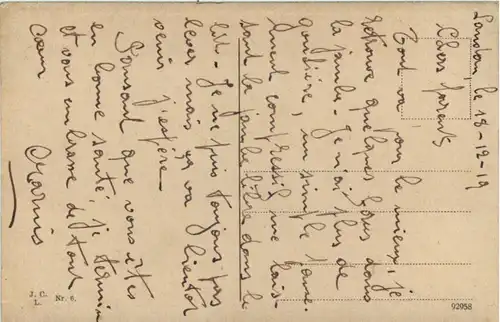 Landau, le 18-12-19
Chers parents
Tout va pour le mieux, je
retrouve quelques forces dans
la jambe. Je n'ai plus de
gouttière, un simple panse-
ment compressif me lais-
sant la jambe libre dans le
lit. Je ne puis toujours pas
lever mais ça va bientôt
venir j'espère.
Pensant que vous êtes
en bonne santé, je termine
et vous embrasse de tout
cœur
Marius
J. C.
L. Nr. 6.
92958